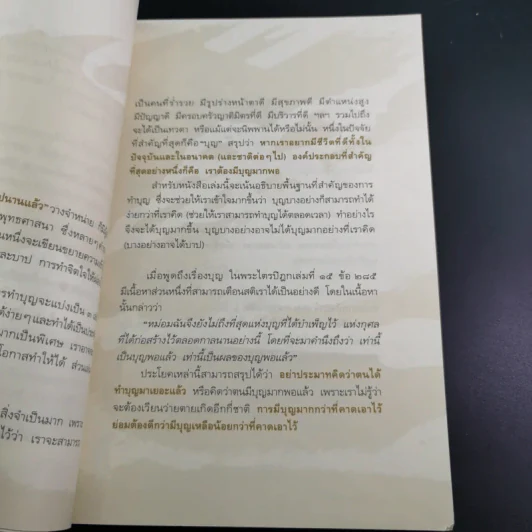 ปนานแล้ว" วางจำหน่าย
พุทธศาสนา ซึ่งหลายๆ
หนึ่งจะเขียนขยายความ
และบาป การทำจิตใจให้
รทำบุญจะแบ่งเป็น
ด้ง่ายๆ และทำได้เป็น
มากเป็นพิเศษ เราอาจ
โอกาสทำให้ได้
สิ่งจำเป็นมาก
ไว้ว่า เราจะสามาร
เป็นคนที่ร่ำรวย มีรูปร่างหน้าตาดี มีสุขภาพดี มีตำแหน่งสูง
มีปัญญาดี มีครอบครัวญาติมิตรที่ดี มีบริวารที่ดี ฯลฯ รวมไปถึง
จะได้เป็นเทวดา หรือแม้แต่จะนิพพานได้หรือไม่นั้น หนึ่งในปัจจัย
ที่สำคัญที่สุดก็คือ "บุญ" สรุปว่า หากเราอยากมีชีวิตที่ดีทั้งใน
ปัจจุบันและในอนาคต (และชาติต่อๆ ไป) องค์ประกอบที่สำคัญ
ที่สุดอย่างหนึ่งก็คือ เราต้องมีบุญมากพอ
สำหรับหนังสือเล่มนี้จะเน้นอธิบายพื้นฐานที่สำคัญของการ
ทำบุญ ซึ่งจะช่วยให้เราเข้าใจมากขึ้นว่า บุญบางอย่างก็สามารถทำได้
ง่ายกว่าที่เราคิด (ช่วยให้เราสามารถทำบุญได้ตลอดเวลา) ทำอย่างไร
จึงจะได้บุญมากขึ้น บุญบางอย่างอาจไม่ได้บุญมากอย่างที่เราคิด
(บางอย่างอาจได้บาป)
เมื่อพูดถึงเรื่องบุญ ในพระไตรปิฎกเล่มที่ ๑๕ ข้อ ๒๘๕
มีเนื้อหาส่วนหนึ่งที่สามารถเตือนสติเราได้เป็นอย่างดี โดยในเนื้อหา
นั้นกล่าวว่า
"หม่อมฉันจึงยังไม่ถึงที่สุดแห่งบุญที่ได้บำเพ็ญไว้ แห่งกุศล
ที่ได้ก่อสร้างไว้ตลอดกาลนานอย่างนี้ โดยที่จะมาคำนึงถึงว่า เท่านี้
เป็นบุญพอแล้ว เท่านี้เป็นผลของบุญพอแล้ว"
ประโยคเหล่านี้สามารถสรุปได้ว่า อย่าประมาทคิดว่าตนได้
ทำบุญมาเยอะแล้ว หรือคิดว่าตนมีบุญมากพอแล้ว เพราะเราไม่รู้ว่า
จะต้องเวียนว่ายตายเกิดอีกกี่ชาติ การมีบุญมากกว่าที่คาดเอาไว้
ย่อมต้องดีกว่ามีบุญเหลือน้อยกว่าที่คาดเอาไว้